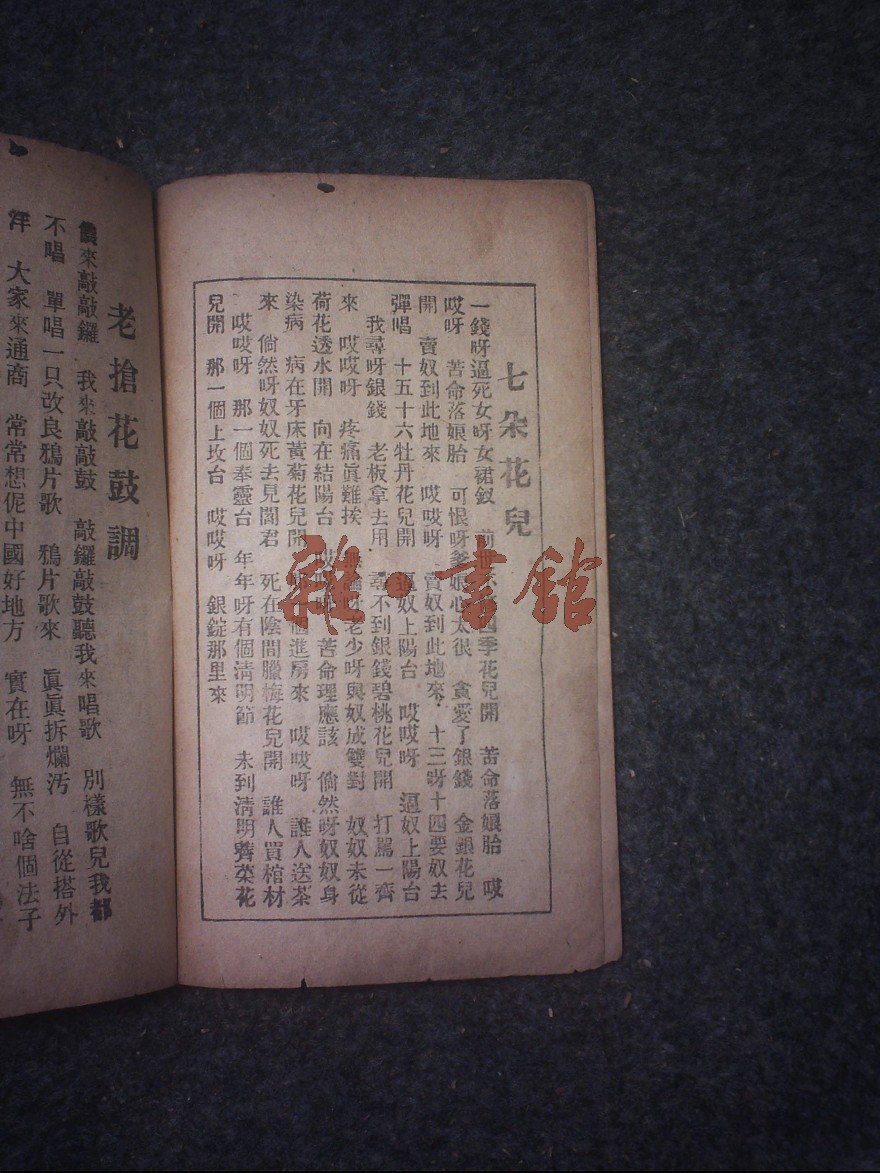 七朵花兒
一錢呀逼死女呀女裙釵 前世 四季花兒開 苦命落娘胎 哎
哎呀 苦命落娘胎 可恨呀爹娘心太很 貪愛了銀錢 金銀花兒
開 賣奴到此地來 哎哎呀 賣奴到此地來 十三呀十四要奴去
彈唱 十五十六牡丹花兒開 逼奴上陽台 哎哎呀 逼奴上陽台
我尋呀銀錢 老板拿去用 尋不到銀錢碧桃花兒開 打罵一齊
來 哎哎呀 疼痛眞難挨 老少呀與奴成雙對 奴奴未從
荷花透水開 向在結陽台 苦命理應該 倘然呀奴奴身
染病 病在牙床黃菊花兒開 個進房來 哎哎呀 誰人送茶
來 倘然呀奴奴死去見閻君 死在陰間臘梅花兒開 誰人買棺材
哎哎呀 那一個奉靈台 年年呀有個淸明節 未到淸明薺菜花
兒開 那一個上坟台 哎哎呀 銀錠那里來
老搶花鼓調
儂來敲敲鑼 我來敲敲鼓 敲鑼敲鼓聽我來唱歌 別樣歌兒我都
不唱 單唱一只改良鴉片歌 鴉片歌來 眞眞拆爛汚 自從搭外
洋 大家來通商 常常想伲中國好地方 實在呀 無不啥個法子
雜·書館